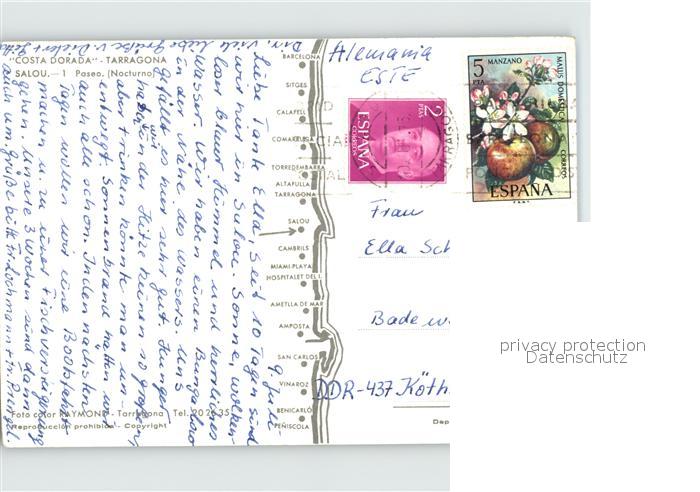 "COSTA DORADA" - TARRAGONA
SALOU.—1 Paseo. (Nocturno)
9. Juli
Liebe Tante Ella, seit 10 Tagen sind
wir hier in Salou. Sonne, wolken-
loser blauer Himmel und herrliches
Wasser. Wir haben einen Bungalow
in der Nähe des Wassers. Uns
gefällt es hier sehr gut. Hunger
hat man bei der Hitze keinen so großen,
aber trinken könnte man un-
entwegt. Sonnenbrand hatten wir
auch alle schon. In den nächsten
Tagen wollen wir eine Bootsfahrt
machen u.
gehen. Unsere 3 Wochen sind dann
auch um. Grüße bitte
Dir viele liebe Grüße v. Dieter +
Foto color RAYMOND - Tarragona Tel. 20 26 35
Reproducción prohibida - Copyright
BARCELONA
SITGES
CALAFELL
COMARRUGA
TORREDEMBARRA
ALTAFULLA
TARRAGONA
SALOU
CAMBRILS
MIAMI-PLAYA
HOSPITALET DEL I.
AMETLLA DE MAR
AMPOSTA
SAN CARLOS
VINAROZ
BENICARLÓ
PEÑISCOLA
Alemania
ESTE
2
PTA
ESPAÑA
CORREOS
5
PTA
MANZANO
MALUS DOMESTICA
CORREOS
ESPAÑA
Frau
Ella Sch
Bade
DDR-437 Köth
Dep
privacy protection
Datenschutz